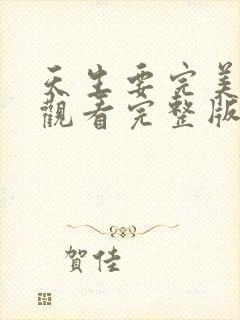 天生要完美
觀看完整版
賀佳